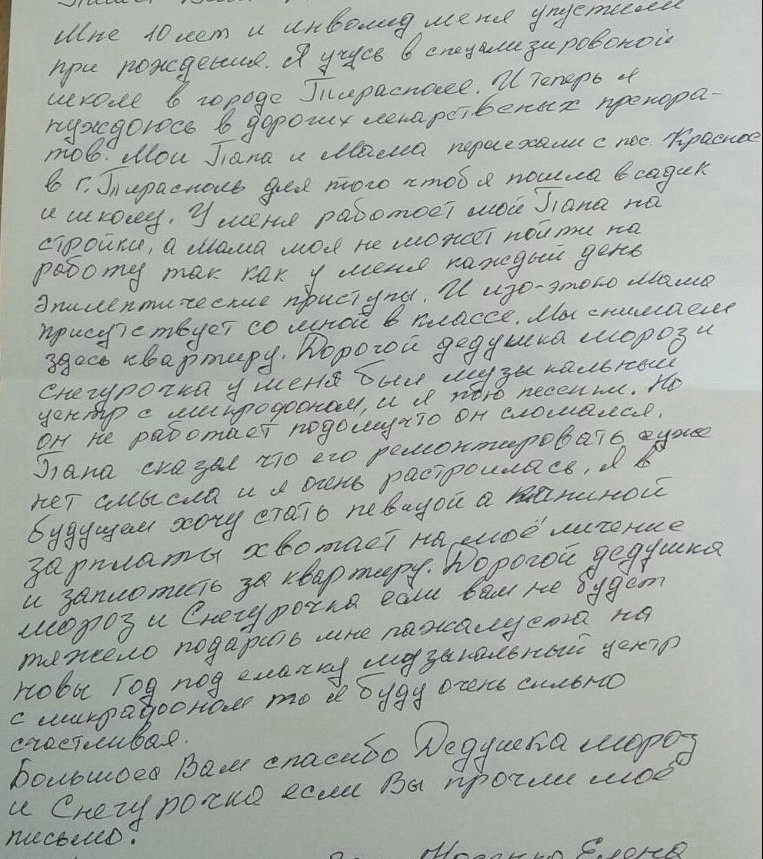 Мне 10 лет и инволид меня упустили
при рождения. Я учусь в специализировоной
школе в городе Тирасполе. И теперь я
нуждоюсь в дорогих лекарственых препора-
тов. Мои Папа и Мама переехали с пос. Красное
в г. Тирасполь для того чтоб я пошла в садик
и школу. У меня работает мой Папа на
стройки, а Мама моя не может пойти на
работу так как у меня каждый день
эпилептические приступы. И изо-этого Мама
присутствует со мной в классе. Мы снимаем
здесь квартиру. Дорогой дедушка мороз и
снегурочка у меня был музыкальный
центр с микрофоном, и я пою песеньи. Но
он не работает подомучто он сломался.
Папа сказал что его ремонтировать уже
нет смысла и я очень растроилась. Я в
будущем хочу стать певицой а папиной
зарплаты хвотает на моё личение
и заплотить за квартиру. Дорогой дедушка
мороз и Снегурочка если вам не будет
тяжело подарить мне пажалуста на
новы Год под ёлачку музыкальный центр
с микрафоном то я буду очень сильно
счастливая.
Большоеа Вам спасибо Дедушка мороз
и Снегурочка если Вы прочли моё
письмо.
Елена